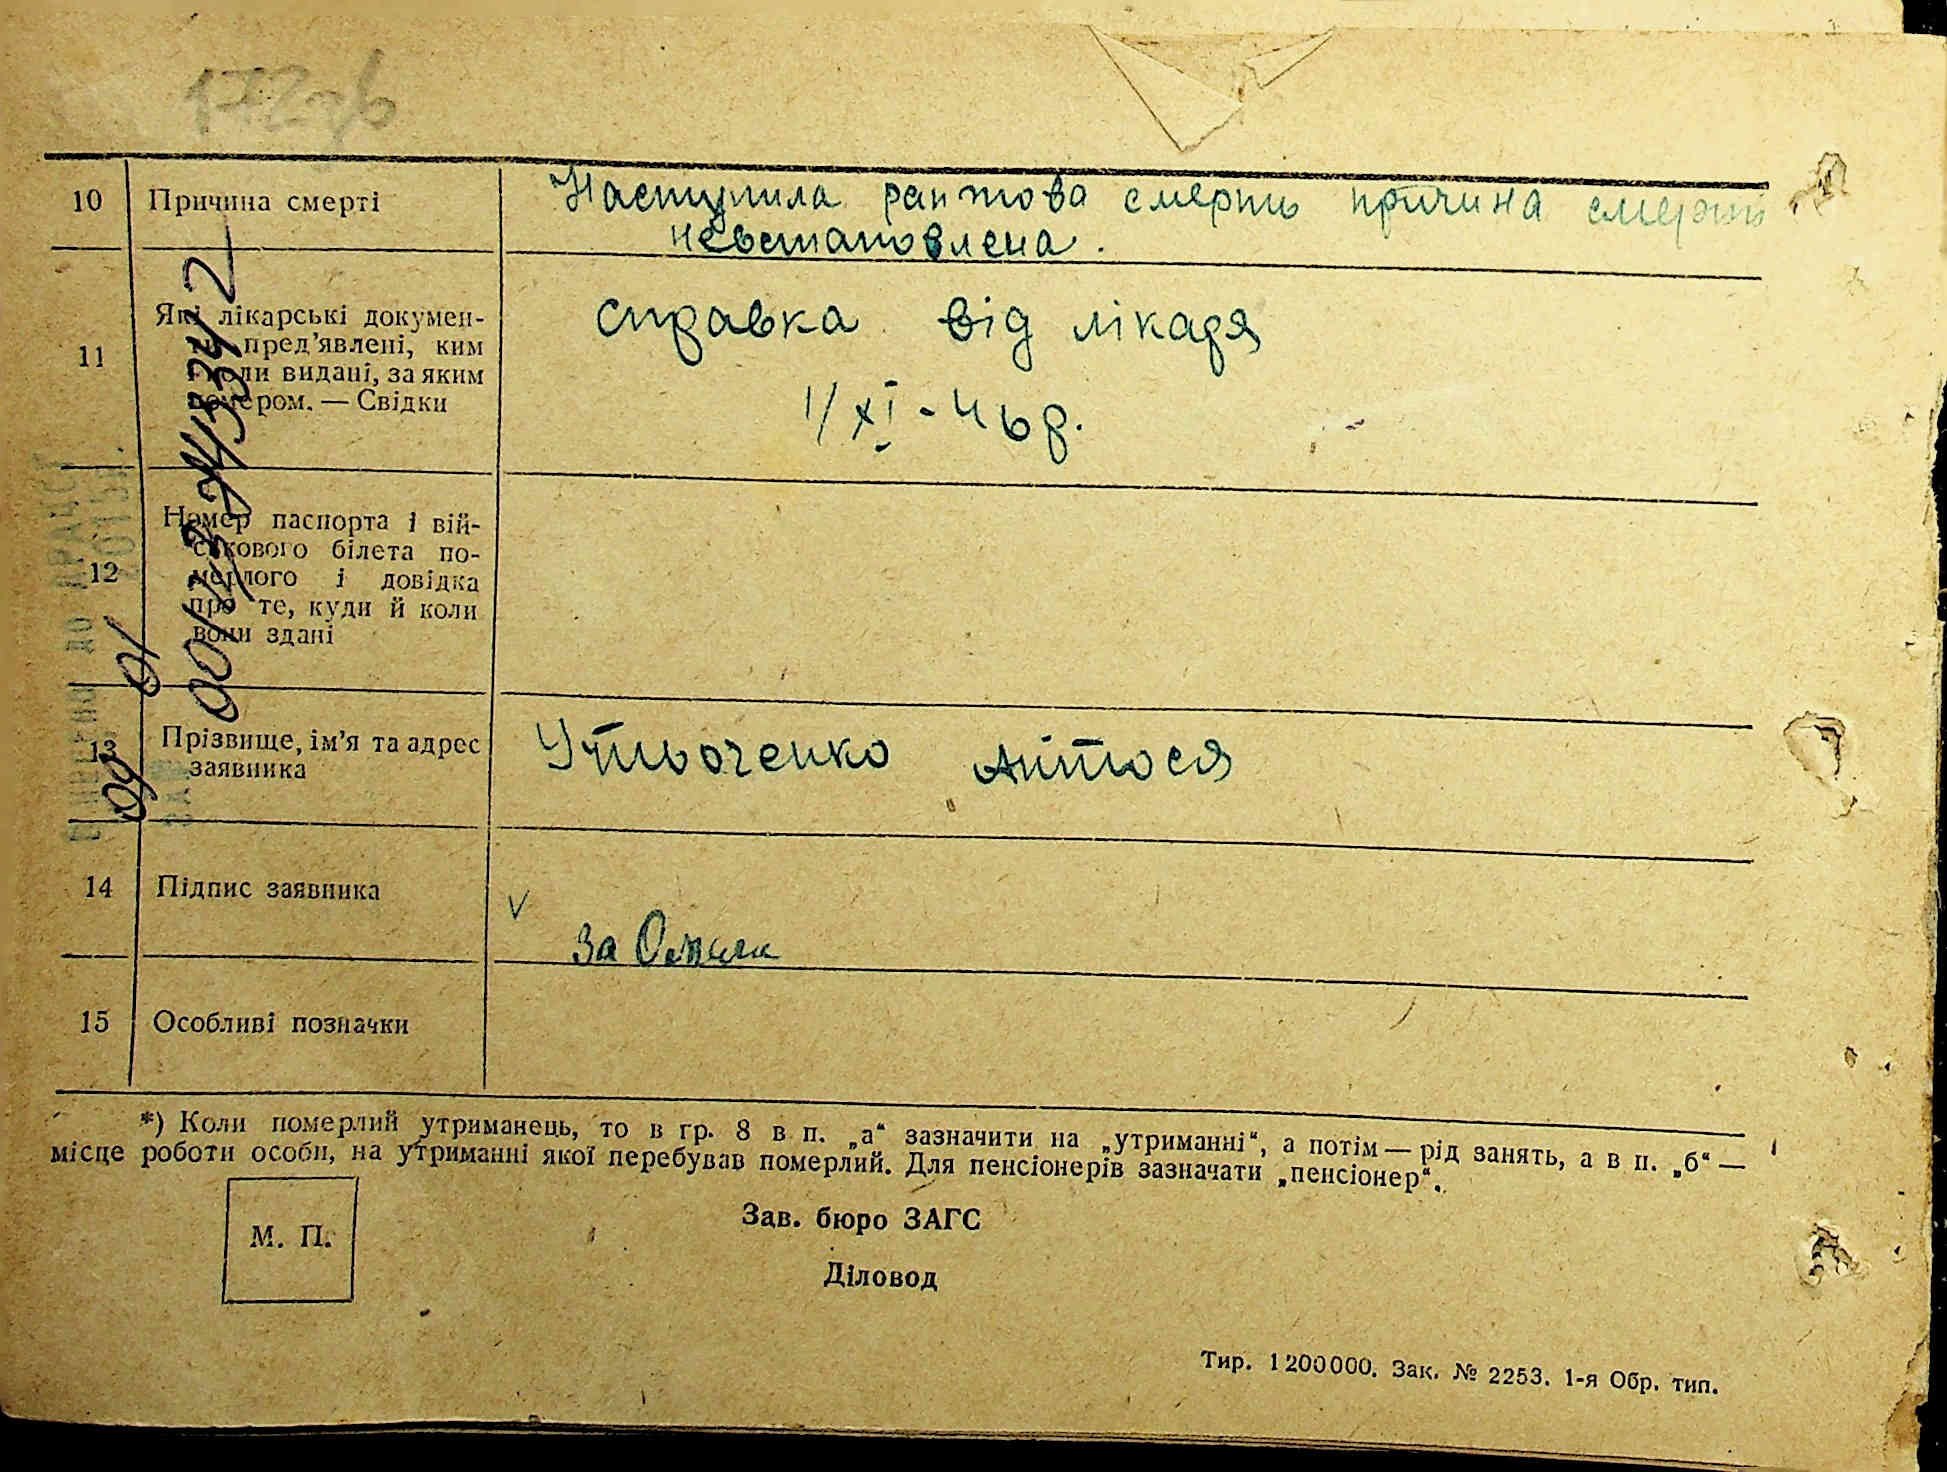 10 Причина смерті Наступила раптова смерть причина смерти
невстановлена.
11 Які лікарські докумен-
ти пред'явлені, ким
і коли видані, за яким
номером. — Свідки
справка від лікаря
1/XI - 46 р.
12 Номер паспорта і вій-
ськового білета по-
мерлого і довідка
про те, куди й коли
вони здані
13 Прізвище, ім'я та адрес
заявника
Антося
14 Підпис заявника
V
За
15 Особливі позначки
*) Коли померлий утриманець, то в гр. 8 в п. „а“ зазначити на „утриманні“, а потім — рід занять, а в п. „б“ —
місце роботи особи, на утриманні якої перебував померлий. Для пенсіонерів зазначати „пенсіонер“.
М. П.
Зав. бюро ЗАГС
Діловод
Тир. 1200000. Зак. № 2253. 1-я Обр. тип.